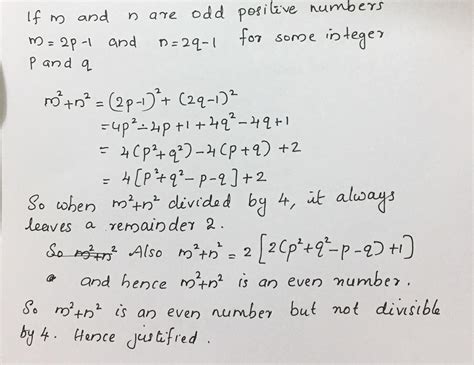 If m and n are odd positive numbers
m = 2p-1 and n = 2q-1 for some integer
p and q
m²+n² = (2p-1)² + (2q-1)²
= 4p² - 4p + 1 + 4q² - 4q + 1
= 4(p²+q²) - 4(p+q) + 2
= 4[p²+q²-p-q] + 2
So when m²+n² divided by 4, it always
leaves a remainder 2.
So m²+n² Also m²+n² = 2[2(p²+q²-p-q)+1]
and hence m²+n² is an even number.
So m²+n² is an even number but not divisible
by 4. Hence justified.